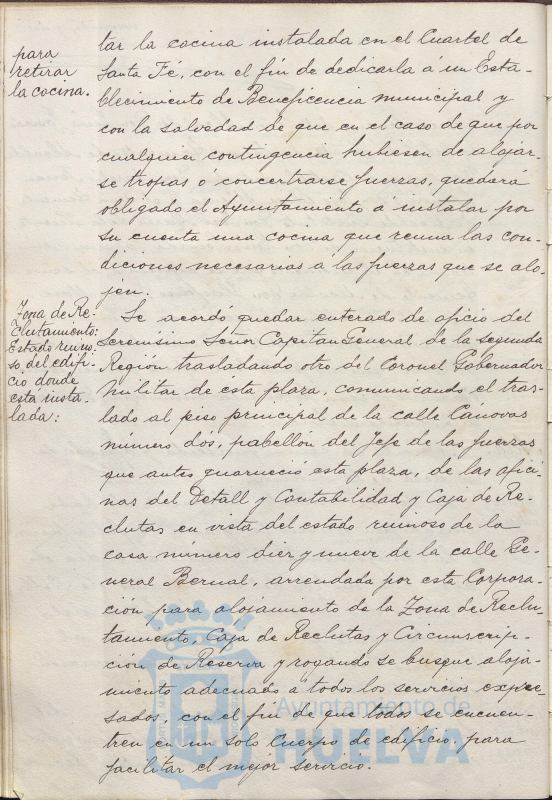 para
retirar
la cocina.
tar la cocina instalada en el Cuartel de
Santa Fé, con el fin de dedicarla á un Esta-
blecimiento de Beneficencia municipal y
con la salvedad de que en el caso de que por
cualquier contingencia hubiesen de alojar-
se tropas ó concertrarse fuerzas, quedará
obligado el Ayuntamiento á instalar por
su cuenta una cocina que reuna las con-
diciones necesarias á las fuerzas que se alo-
jen.
Zona de Re-
clutamiento:
Estado ruino-
so, del edifi-
cio donde
esta insta-
lada:
Se acordó quedar enterado de oficio del
Serenísimo Señor Capitan General de la segunda
Región trasladando otro del Coronel Gobernador
Militar de esta plaza, comunicando el tras-
lado al piso principal de la calle Cánovas
número dos, pabellón del Jefe de las fuerzas
que antes guarneció esta plaza, de las ofici-
nas del Detall y Contabilidad y Caja de Re-
clutas en vista del estado ruinoso de la
casa número diez y nueve de la calle Ge-
neral Bernal, arrendada por esta Corpora-
ción para alojamiento de la Zona de Reclu-
tamiento, Caja de Reclutas y Circunscrip-
ción de Reserva y rogando se busque aloja-
miento adecuado a todos los servicios expre-
sados, con el fin de que todos se encuen-
tren en un solo Cuerpo de edificio, para
facilitar el mejor servicio.
Ayuntamiento de
HUELVA